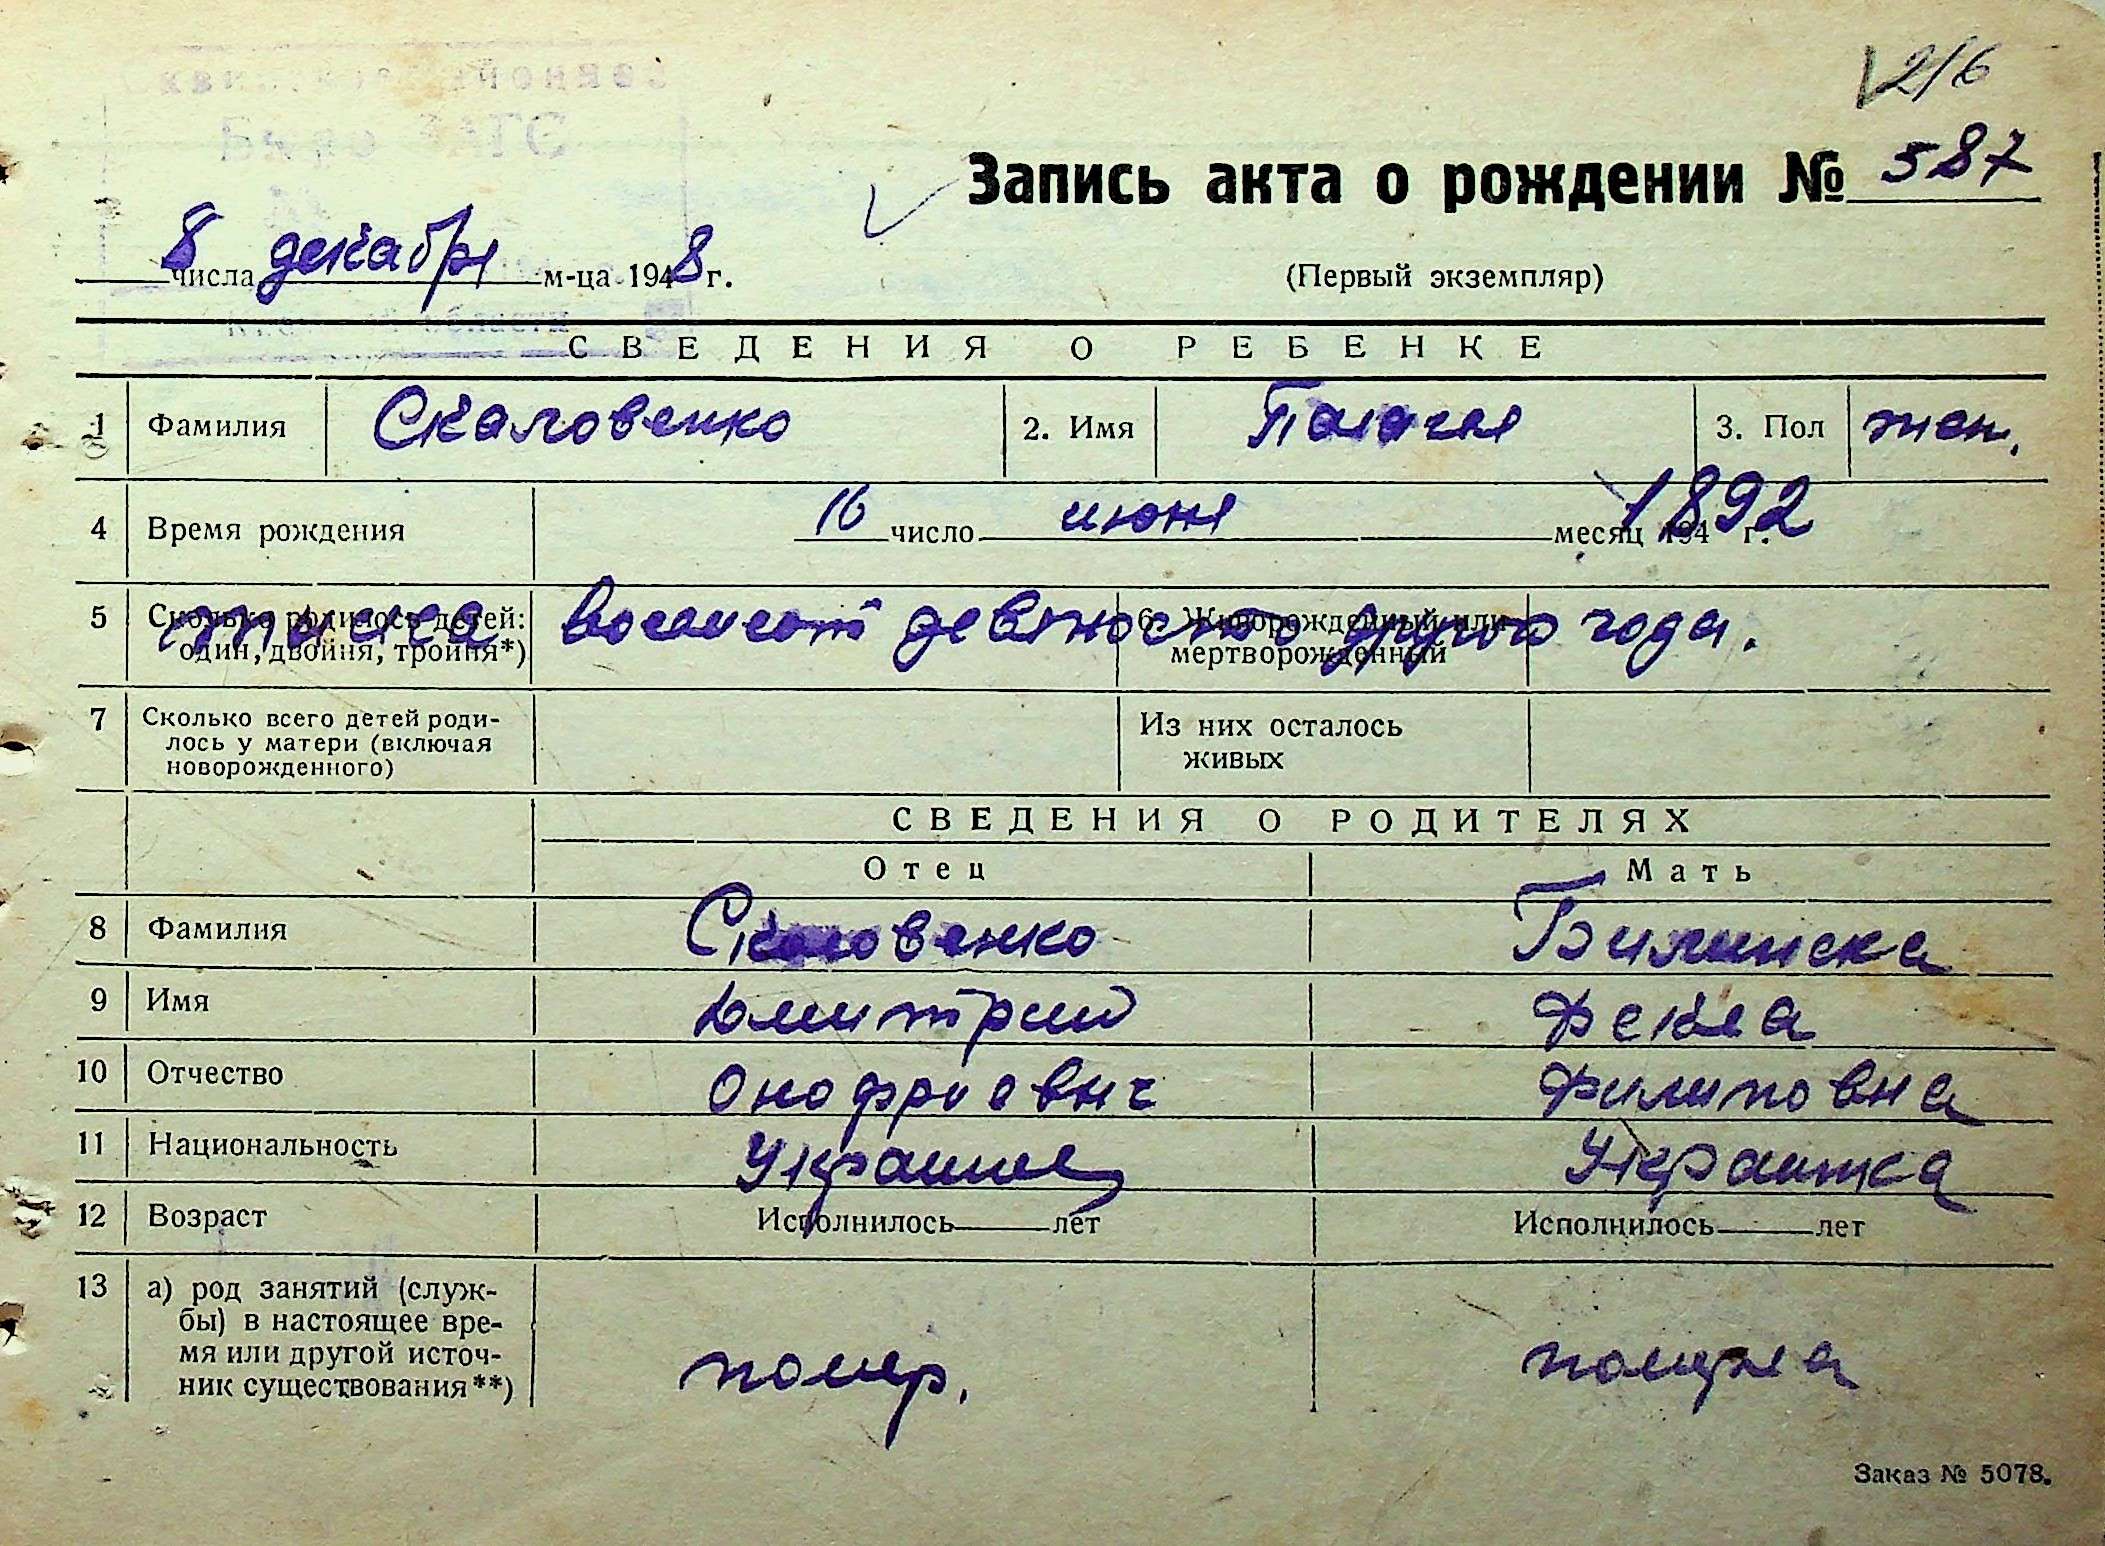 216
Запись акта о рождении № 587
8 числа декабря м-ца 1948 г.
(Первый экземпляр)
области
СВЕДЕНИЯ О РЕБЕНКЕ
1 Фамилия Скаловенко 2. Имя Палагея 3. Пол жен.
4 Время рождения 16 число июня месяц 194 г. 1892
5 Сколько родилось детей: один, двойня, тройня*) 6. Живорожденный или мертворожденный
тысяча восемсот девяносто другого года.
7 Сколько всего детей роди-
лось у матери (включая
новорожденного)
Из них осталось
живых
СВЕДЕНИЯ О РОДИТЕЛЯХ
Отец Мать
8 Фамилия Скаловенко Билинска
9 Имя Дмитрий Фекла
10 Отчество Онофриевич Филиповна
11 Национальность Украинец Украинка
12 Возраст Исполнилось лет Исполнилось лет
13 а) род занятий (служ-
бы) в настоящее вре-
мя или другой источ-
ник существования**)
помер. померла
Заказ № 5078.